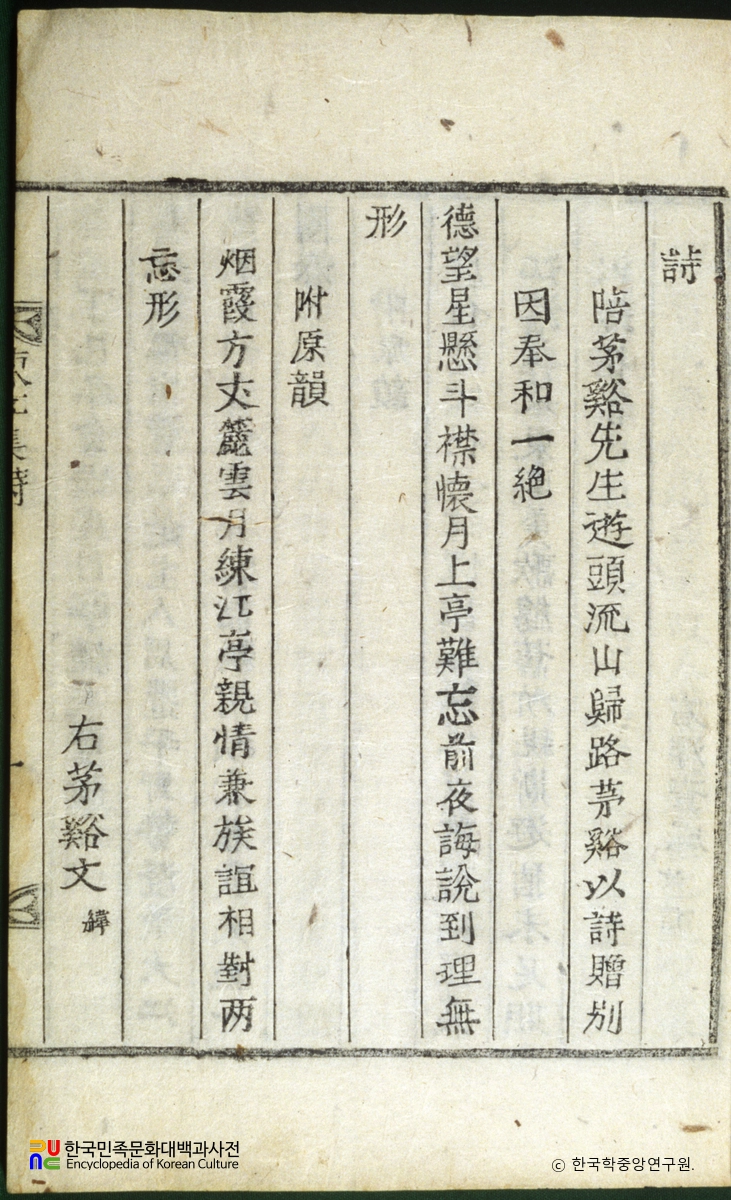 詩
陪茅谿先生遊頭流山歸路茅谿以詩贈別
因奉和一絶
德望星懸斗襟懷月上亭難忘前夜誨說到理無
形
附原韻
烟霞方丈籠雲月練江亭親情兼族誼相對两
忘形
右茅谿文緯
集詩
一
한국민족문화대백과사전
Encyclopedia of Korean Culture
© 한국학중앙연구원.